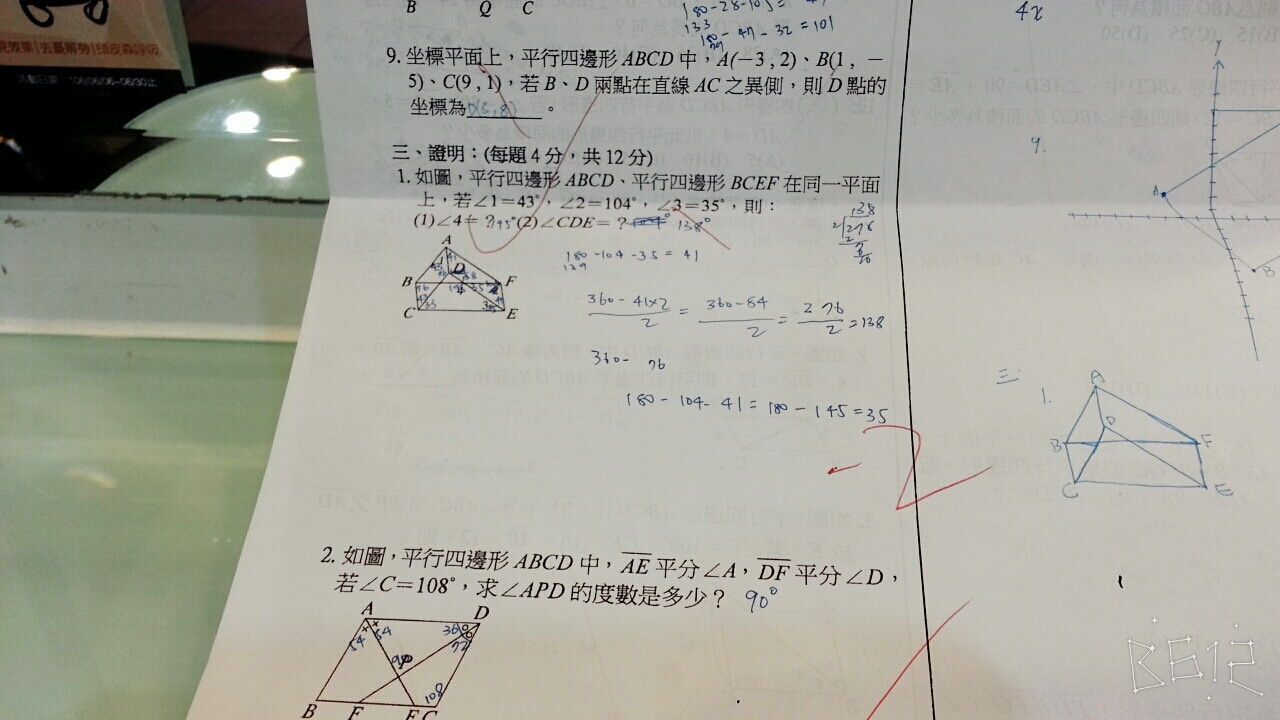 B Q C
180-28-105=
133
180-47-32=101
4x
9. 坐標平面上，平行四邊形 ABCD 中，A(－3 , 2)、B(1 , －
5)、C(9 , 1)，若 B、D 兩點在直線 AC 之異側，則 D 點的
坐標為 D(5,8) 。
三、證明：(每題 4 分，共 12 分)
1. 如圖，平行四邊形 ABCD、平行四邊形 BCEF 在同一平面
上，若∠1＝43°，∠2＝104°，∠3＝35°，則：
(1)∠4＝？ (2)∠CDE＝？ 138°
138
2/276
A
B D F
C E
180-104-35=41
139
360-41×2/2 = 360-84/2 = 276/2 =138
360- 76
180-104-41=180-145=35
2. 如圖，平行四邊形 ABCD 中，AE 平分∠A，DF 平分∠D，
若∠C＝108°，求∠APD 的度數是多少？ 90°
A D
54 54 36 72
108
B F E C
9.
Y
A
B
三
1.
A
D
B F
C E
B612